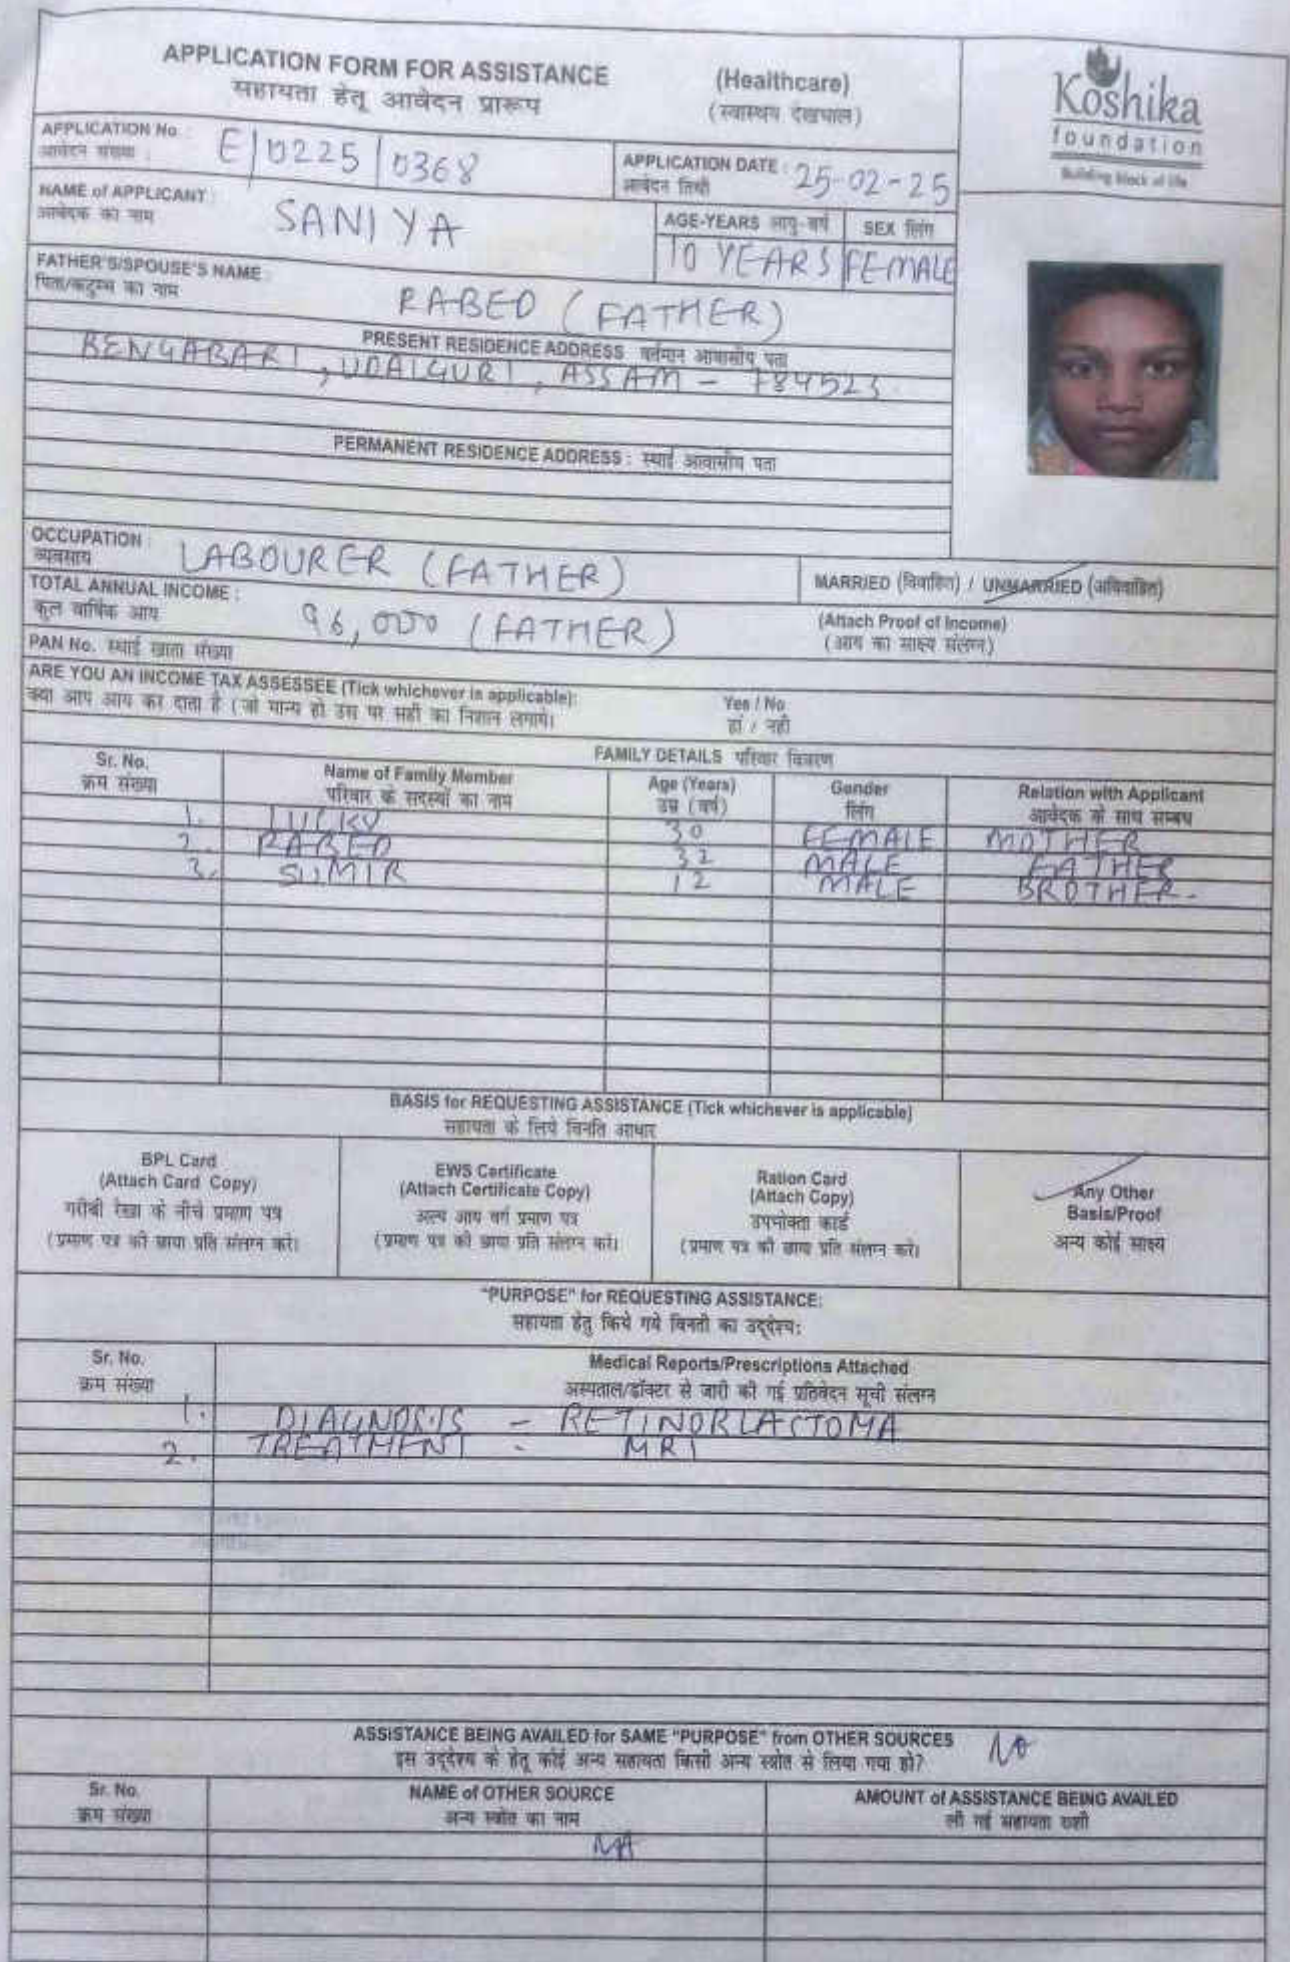 APPLICATION FORM FOR ASSISTANCE (Healthcare)
सहायता हेतू आवेदन प्रारूप (स्वास्थ्य देखभाल)
Koshika
foundation
Building block of life
APPLICATION No. : E/0225/0368
आवेदन संख्या :
APPLICATION DATE : 25-02-25
आवेदन तिथी
NAME of APPLICANT : SANIYA
आवेदक का नाम
AGE-YEARS आयु-वर्ष SEX लिंग
10 YEARS FEMALE
FATHER'S/SPOUSE'S NAME : RABED (FATHER)
पिता/कटुम्ब का नाम
PRESENT RESIDENCE ADDRESS वर्तमान आवासीय पता
BENGABARI, UDALGURI, ASSAM - 784523
PERMANENT RESIDENCE ADDRESS : स्थाई आवासीय पता
OCCUPATION : LABOURER (FATHER)
व्यवसाय
MARRIED (विवाहित) / UNMARRIED (अविवाहित)
TOTAL ANNUAL INCOME : 96,000 (FATHER)
कुल वार्षिक आय
(Attach Proof of Income)
(आय का साक्ष्य संलग्न)
PAN No. स्थाई खाता संख्या
ARE YOU AN INCOME TAX ASSESSEE (Tick whichever is applicable): Yes / No
क्या आप आय कर दाता है (जो मान्य हो उस पर सही का निशान लगाये। हां / नही
FAMILY DETAILS परिवार विवरण
Sr. No. Name of Family Member Age (Years) Gender Relation with Applicant
क्रम संख्या परिवार के सदस्यों का नाम उम्र (वर्ष) लिंग आवेदक के साथ सम्बध
1. LUCKY 30 FEMALE MOTHER
2. RABED 32 MALE FATHER
3. SUMIR 12 MALE BROTHER-
BASIS for REQUESTING ASSISTANCE (Tick whichever is applicable)
सहायता के लिये विनति आधार
BPL Card
(Attach Card Copy)
गरीबी रेखा के नीचे प्रमाण पत्र
(प्रमाण पत्र की छाया प्रति संलग्न करे।
EWS Certificate
(Attach Certificate Copy)
अल्प आय वर्ग प्रमाण पत्र
(प्रमाण पत्र की छाया प्रति संलग्न करे।
Ration Card
(Attach Copy)
उपभोक्ता कार्ड
(प्रमाण पत्र की छाया प्रति संलग्न करे।
Any Other
Basis/Proof
अन्य कोई साक्ष्य
"PURPOSE" for REQUESTING ASSISTANCE:
सहायता हेतु किये गये विनती का उद्देश्य:
Sr. No. Medical Reports/Prescriptions Attached
क्रम संख्या अस्पताल/डॉक्टर से जारी की गई प्रतिवेदन सूची संलग्न
1. DIAGNOSIS - RETINOBLASTOMA
2. TREATMENT - MRI
ASSISTANCE BEING AVAILED for SAME "PURPOSE" from OTHER SOURCES NO
इस उद्देश्य के हेतू कोई अन्य सहायता किसी अन्य स्त्रोत से लिया गया हो?
Sr. No. NAME of OTHER SOURCE AMOUNT of ASSISTANCE BEING AVAILED
क्रम संख्या अन्य स्त्रोत का नाम ली गई सहायता राशी
NA